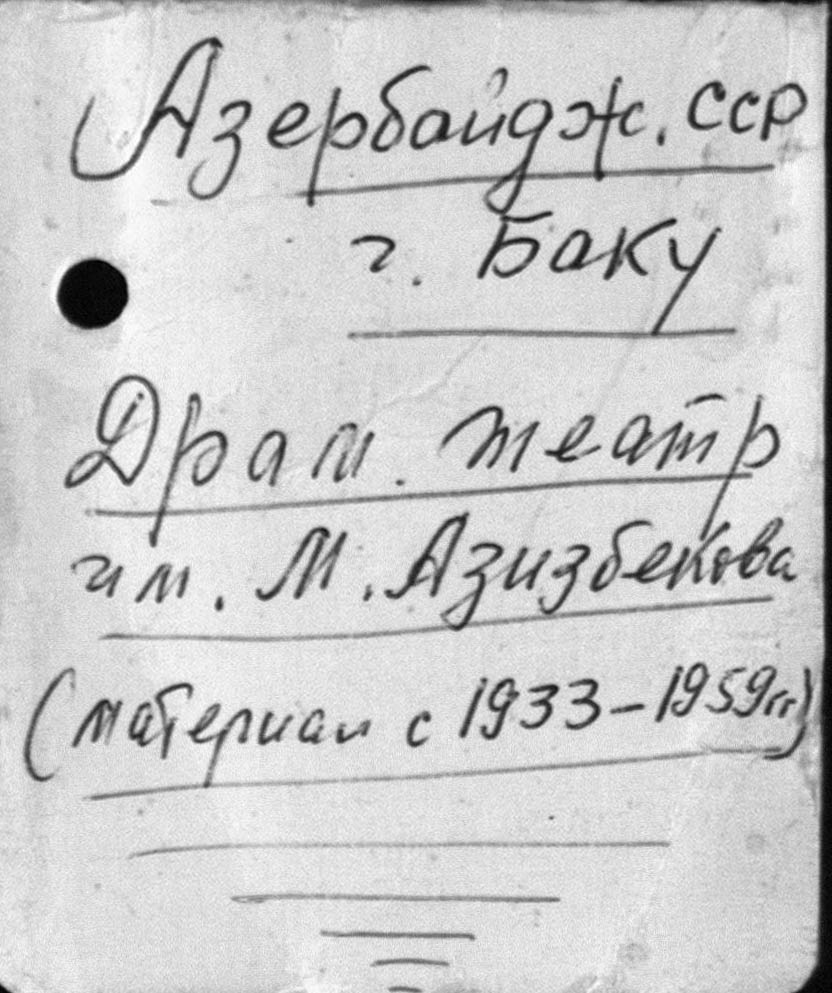 Азербайдж. ССР
г. Баку
Драм. театр
им. М. Азизбекова
(материал с 1933–1959гг)